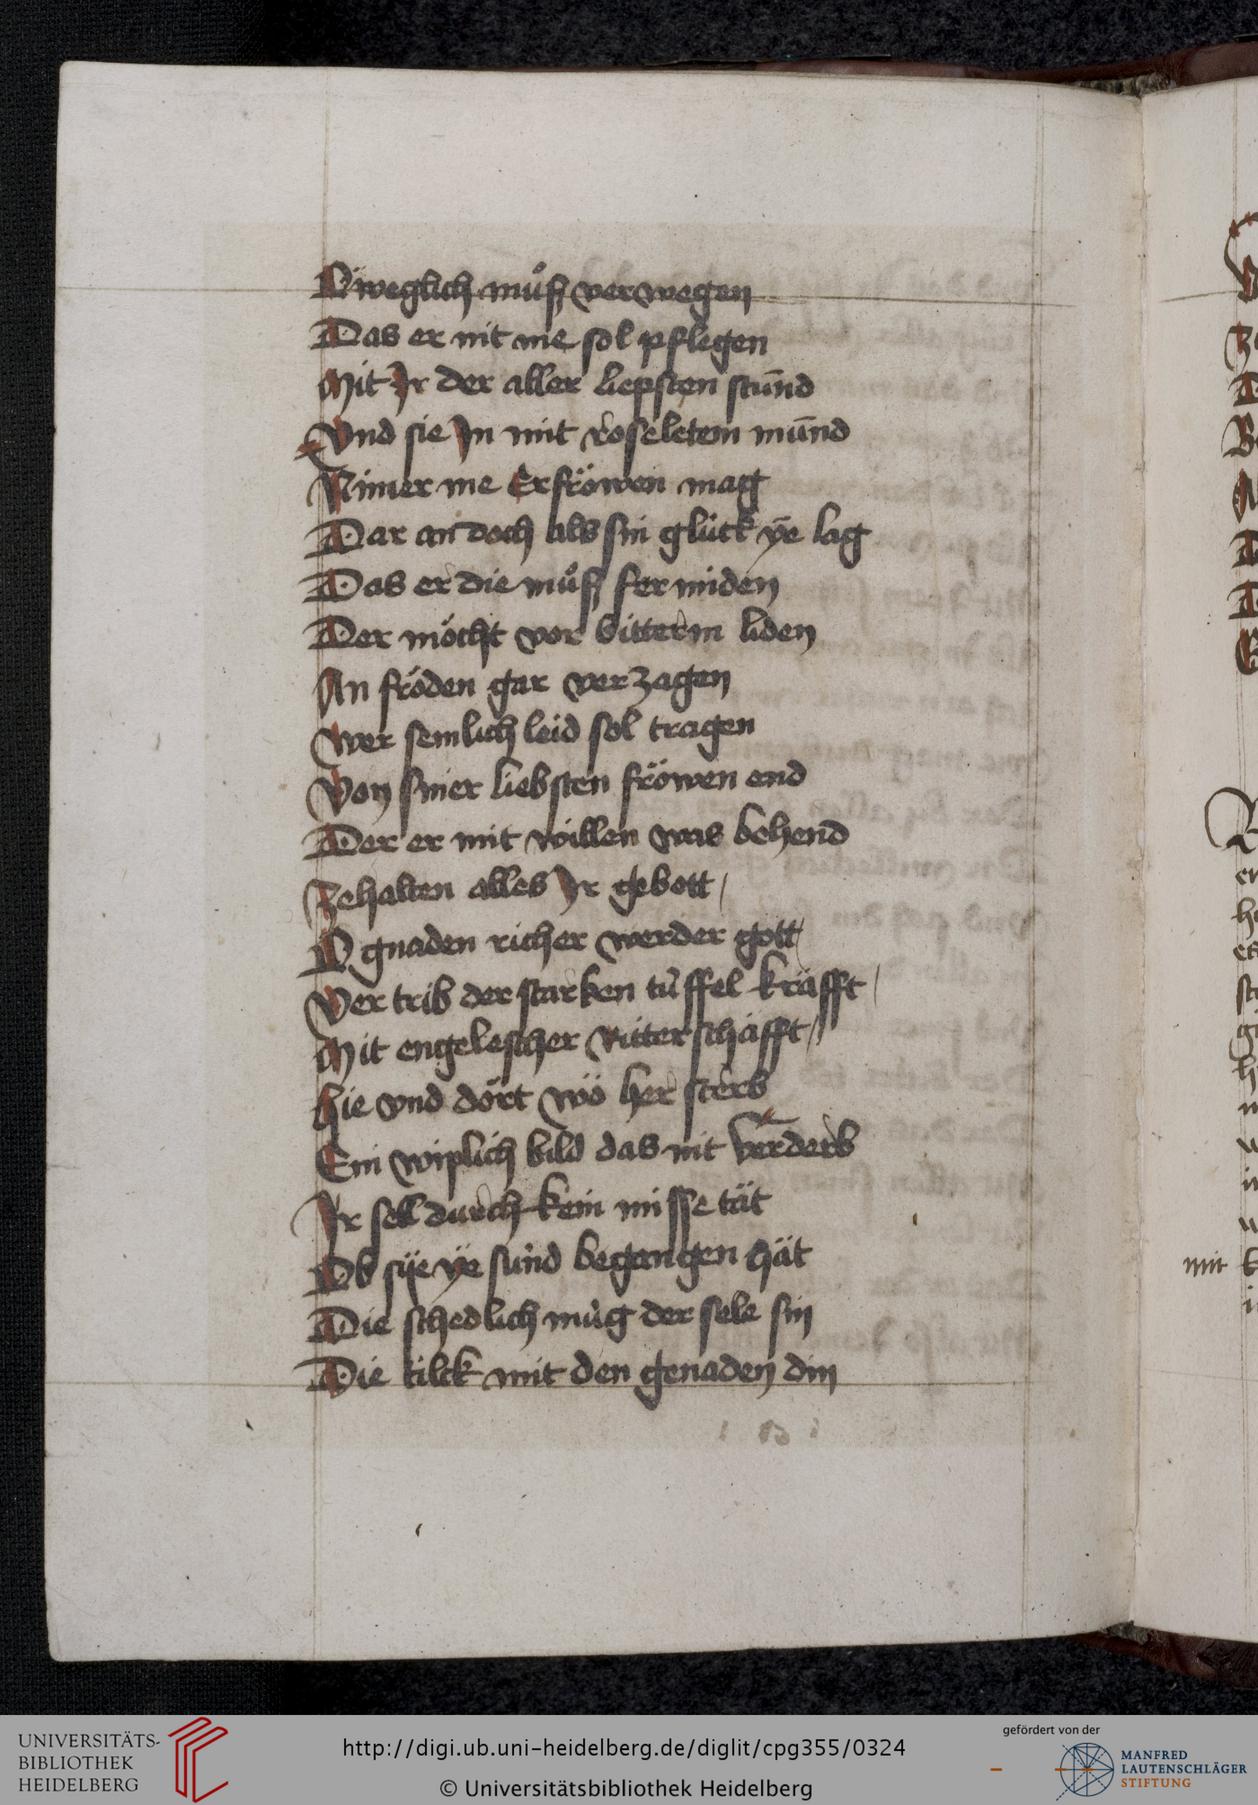 Öweglich můß verwegen
Das er nit me sol pflegen
Mit Jr der aller liepsten stūnd
Vnd sie Jn mit roseletem mūnd
Nimer me Erfröwen mag
Dar an doch als sin glück ye lag
Das er die můß fermiden
Der möcht vor bitterm liden
An fröden gar verzagen
Wer semlich leid sol tragen
Von siner liebsten fröwen end
Der er mit willen was behend
Zehalten alles Jr gebott /
O gnaden richer werder gott /
Vertrib der starken tüffel kräfft /
Mit engelescher ritterschäfft /
Hie vnd dört wö her sterb
Ein wiplich bild das nit verderb
Jr sell durch kein missetät
Ob sÿe ÿe sünd begangen hät
Die schedlich müg der sele sin
Die tilck mit den genaden din
mit
UNIVERSITÄTS-
BIBLIOTHEK
HEIDELBERG
http://digi.ub.uni-heidelberg.de/diglit/cpg355/0324
© Universitätsbibliothek Heidelberg
gefördert von der
MANFRED
LAUTENSCHLÄGER
STIFTUNG